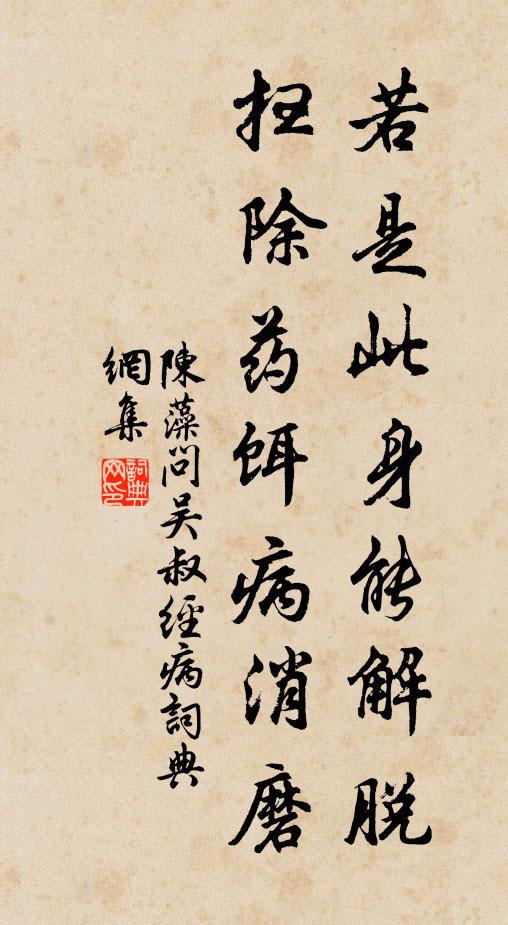 若是此身能解脱
扫除药饵病消磨
陳藻問吴叔經病詞典
網集
詞典
网印